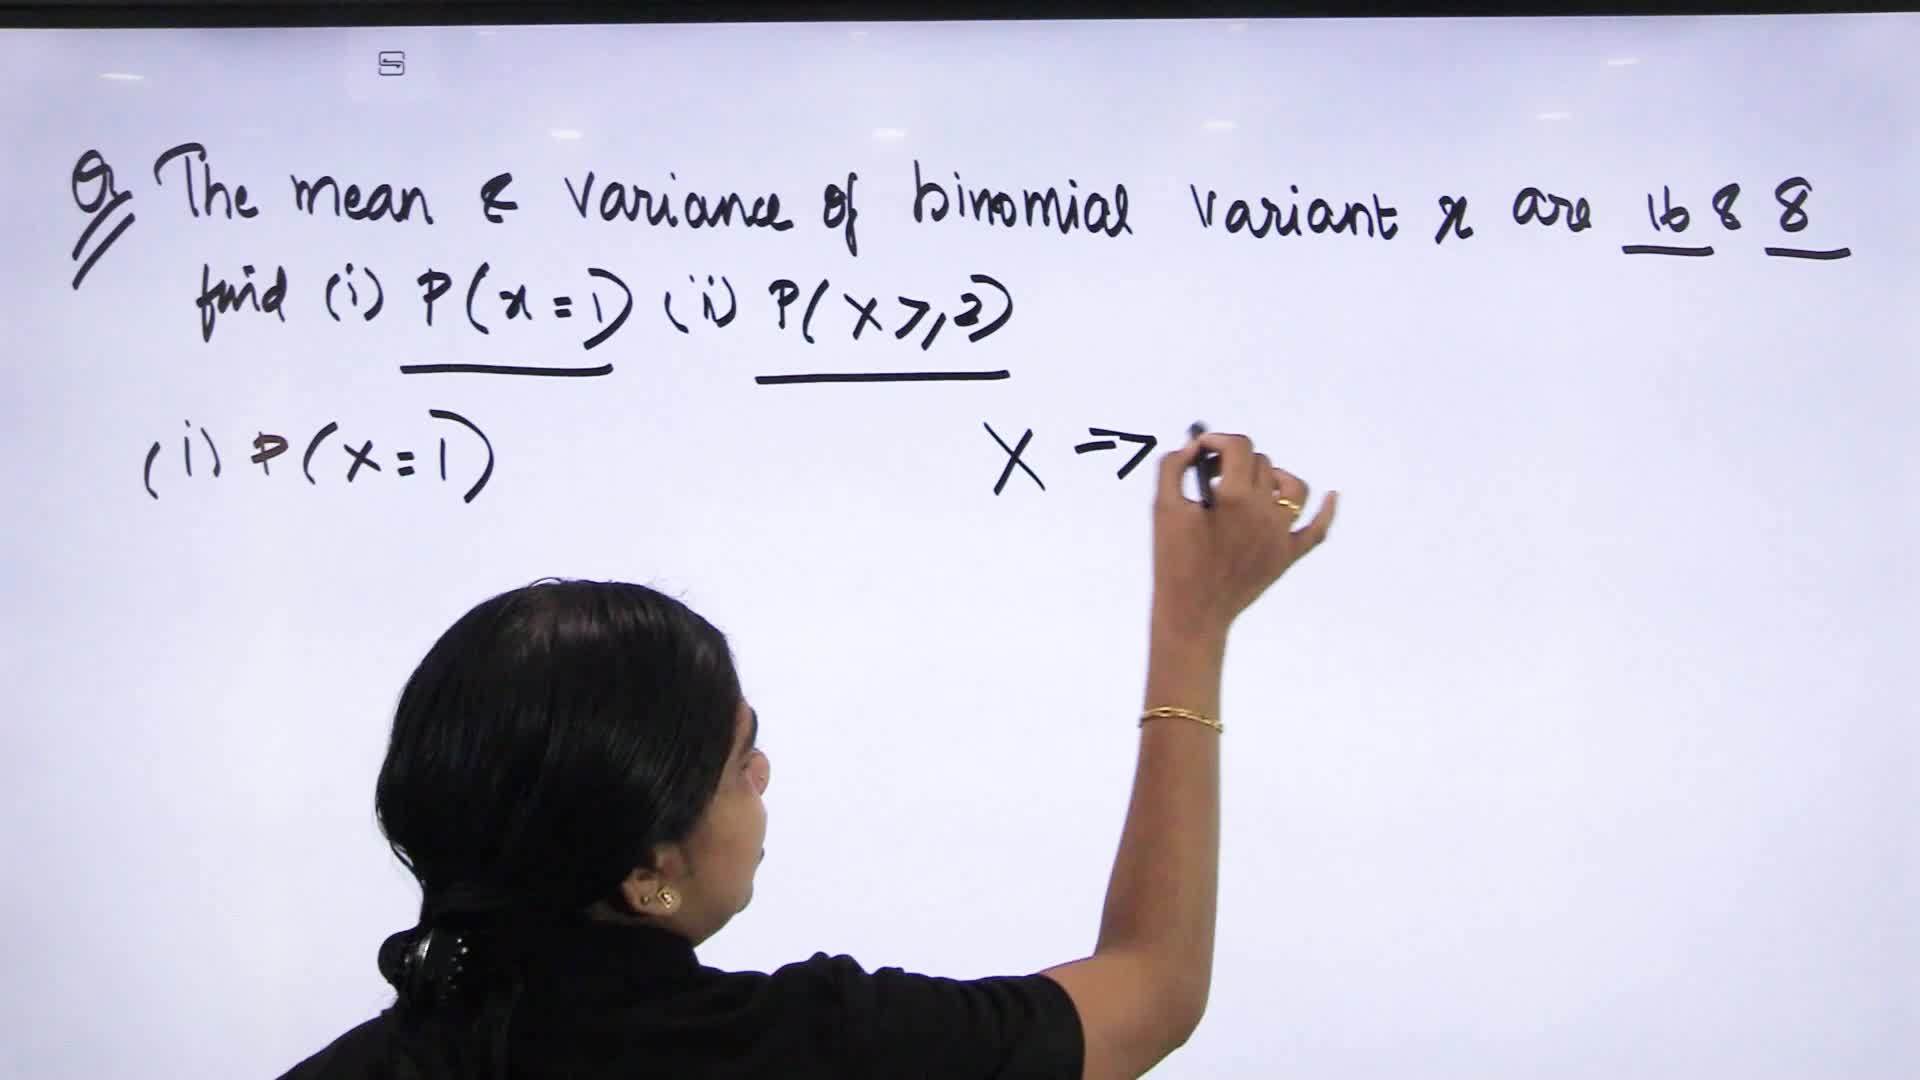 Q The mean & variance of binomial variant x are 16 & 8
find (i) P(x=1) (ii) P(X≥2)
(i) P(X=1)
X ⇒